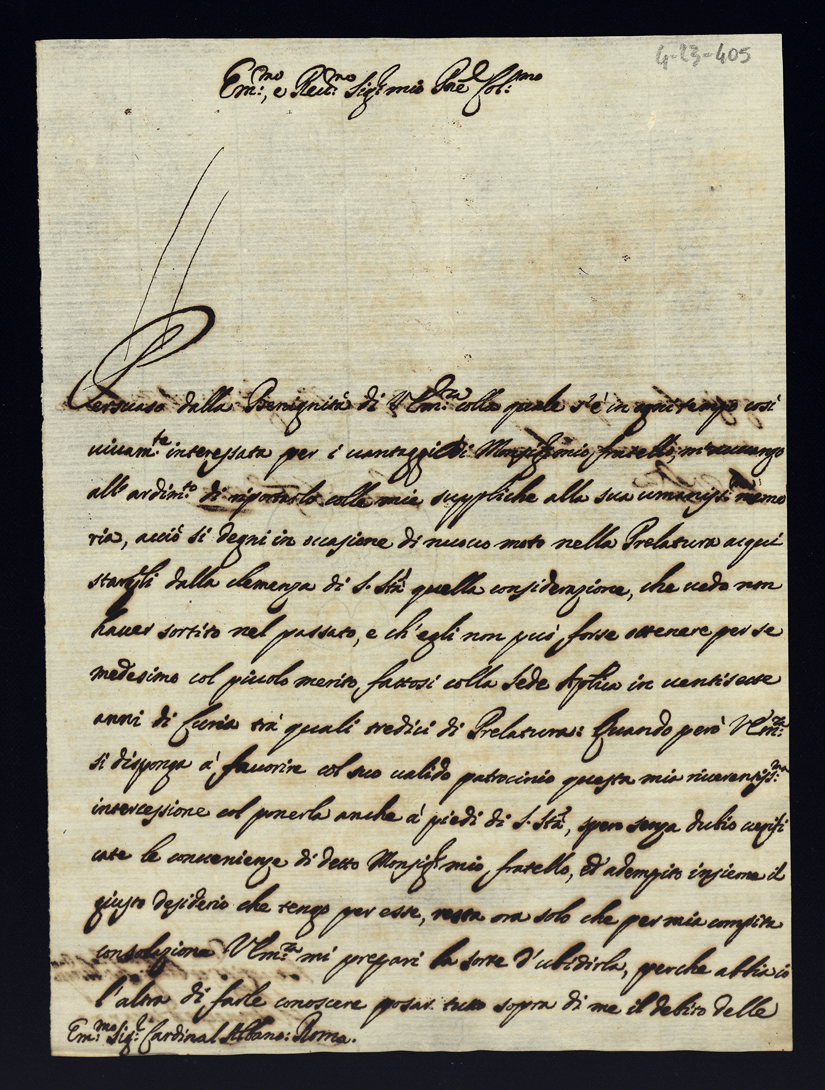 4-23-405
Em:mo, e Reu:mo Sig:r mio Pne Col:mo
Persuaso dalla Benignità di V Em:za colla quale s'è in ogni tempo così
viuam:te interessata per i uantaggi di Monsig:r mio fratello, m'auuanzo
all'ardim:to di riportarlo colle mie suppliche alla sua umaniss:ma memo
ria, acciò si degni in occasione di nuouo moto nella Prelatura acqui
stargli dalla clemenza di S. Stà quella considerazione, che uedo non
hauer sortito nel passato, e ch'egli non può forse ottenere per se
medesimo col piccolo merito fattosi colla Sede Aplica in uentisette
anni di Curia trà quali tredici di Prelatura: Quando però V Em:za
si disponga à fauorire col suo ualido patrocinio questa mia riuerentiss:ma
intercessione col ponerla anche à piedi di S. Stà, spero senza dubio uerifi
cate le conuenienze di detto Monsig:r mio fratello, ed adempito insieme il
giusto desiderio che tengo per esse, resta ora solo che per mia compita
consolazione V Em:za mi prepari la sorte d'ubidirla, perche abbia io
l'altra di farle conoscere posar tutto sopra di me il debito delle
Em:mo Sig:r Cardinal Albano: Roma.